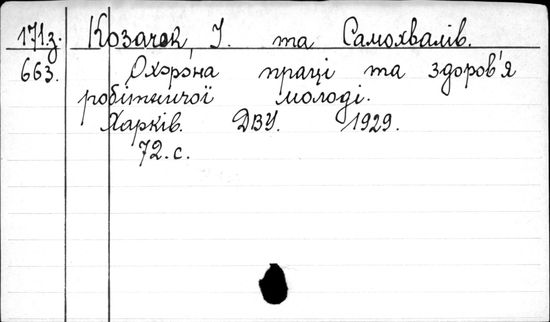 171з. Козачек, І. та Самохвалів.
663. Охорона праці та здоров'я
робітничої молоді.
Харків. ДВУ. 1929.
72.с.